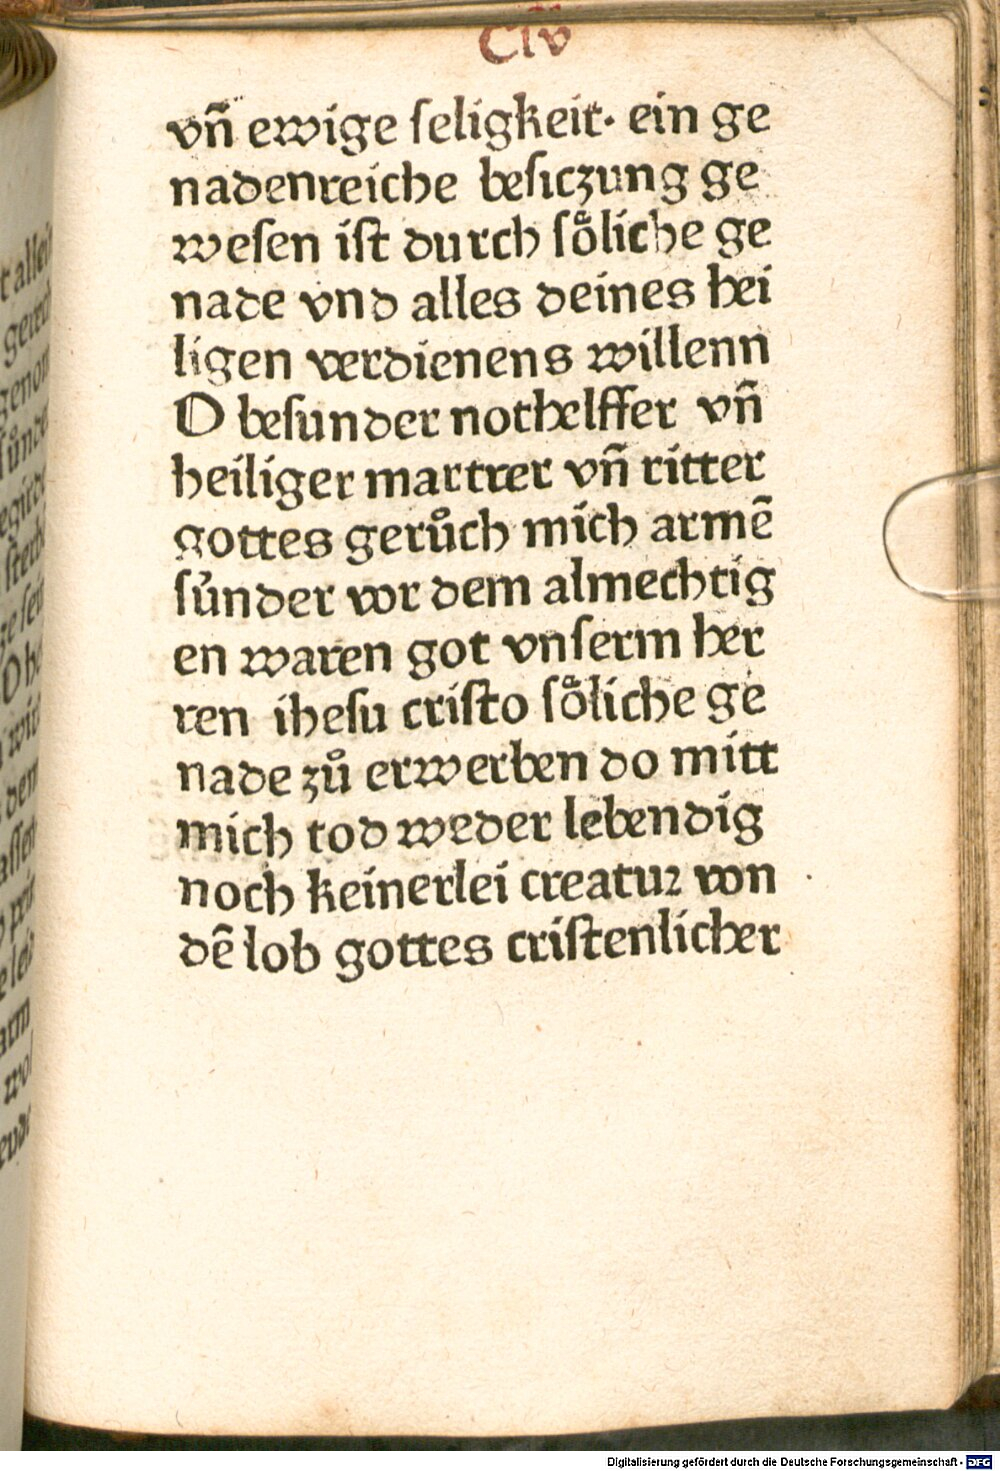 Clv
vñ ewige ſeligkeit· ein ge
nadenreiche beſiczung ge
weſen iſt durch ſoͤliche ge
nade vnd alles deines hei
ligen verdienens willenn
O beſunder nothelffer vñ
heiliger martrer vñ ritter
gottes geruͦch mich armē
ſuͤnder vor dem almechtig
en waren got vnſerm her
ren iheſu criſto ſoͤliche ge
nade zuͦ erwerben do mitt
mich tod weder lebendig
noch keinerlei creatuꝛ von
dē lob gottes criſtenlicher
Digitalisierung gefördert durch die Deutsche Forschungsgemeinschaft - DFG